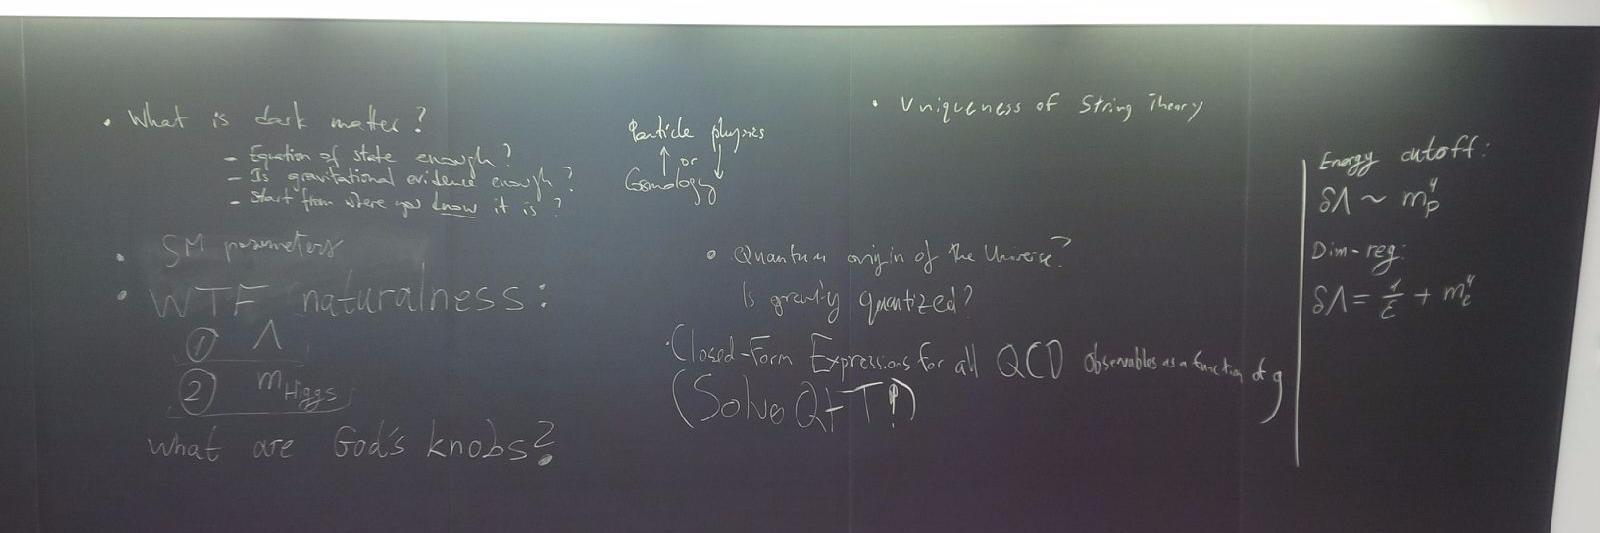 • What is dark matter?
- Equation of state enough?
- Is gravitational evidence enough?
- Start from where you know it is?
Particle physics
↑ or ↓
Cosmology
• SM parameters
• WTF naturalness:
① Λ
② m_Higgs
What are God's knobs?
• Uniqueness of String Theory
• Quantum origin of the Universe?
Is gravity quantized?
• Closed-Form Expressions for all QCD observables as a function of g
(Solve QFT!)
Energy cutoff:
δΛ ~ m_p^4
Dim-reg:
δΛ = 1/ε + m_e^4